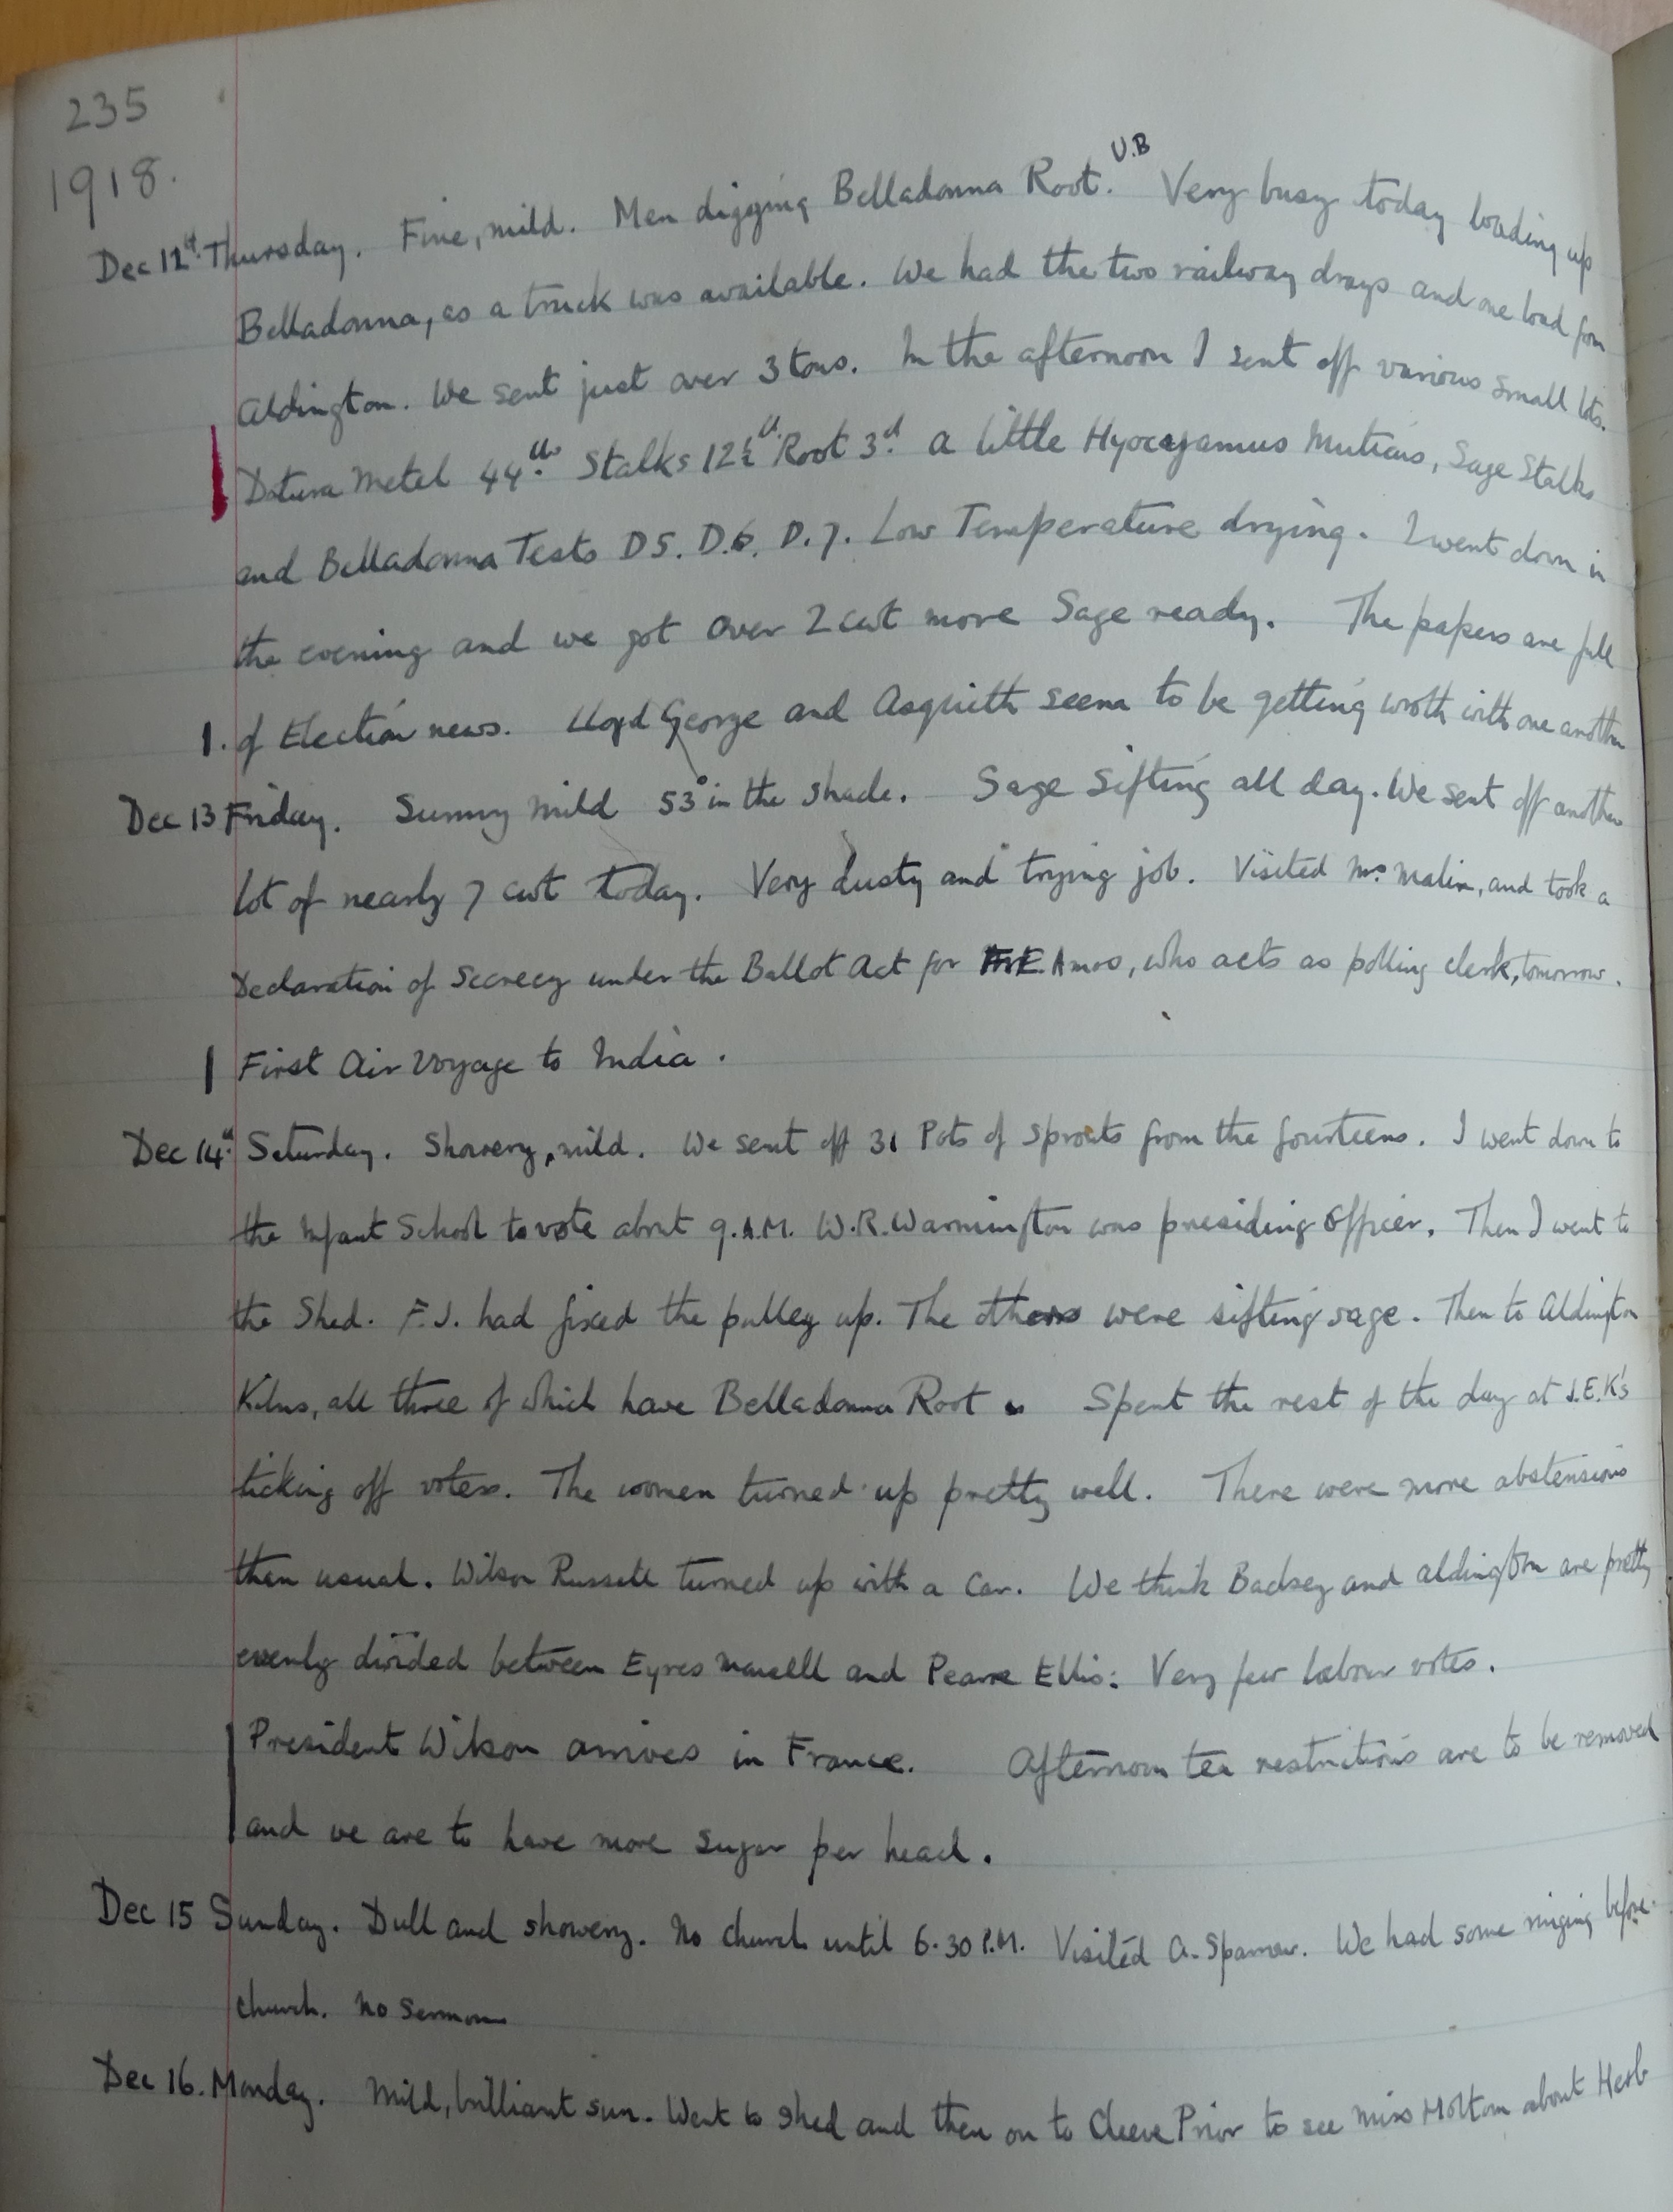 235
1918.
U.B
Dec 12th. Thursday. Fine, mild. Men digging Belladonna Root. Very busy today loading up
Belladonna, as a truck was available. We had the two railway drays and one load from
Aldington. We sent just over 3 tons. In the afternoon I sent off various small lots.
Datura Metel 44 lbs. Stalks 12½ lb. Root 3 a little Hyocyamus Muticus, Sage Stalks
and Belladonna Tests D5. D.6. D.7. Low Temperature drying. I went down in
the evening and we got over 2 cwt more Sage ready. The papers are full
1. of Election news. Lloyd George and Asquith seem to be getting wroth with one another
Dec 13 Friday. Sunny mild 53° in the shade. Sage Sifting all day. We sent off another
lot of nearly 7 cwt today. Very dusty and trying job. Visited Mrs Malin, and took a
Declaration of Secrecy under the Ballot Act for Amos, who acts as polling clerk, tomorrow.
First Air Voyage to India.
Dec 14th. Saturday. Showery, mild. We sent off 31 Pots of Sprouts from the fourteens. I went down to
the Infant School to vote about 9.A.M. W.R. Warmington was presiding Officer. Then I went to
the Shed. F.J. had fixed the pulley up. The others were sifting sage. Then to Aldington
Kilns, all three of which have Belladonna Root. Spent the rest of the day at J.E.K's
ticking off voters. The women turned up pretty well. There were more abstensions
than usual. Wilson Russell turned up with a Car. We think Badsey and Aldington are pretty
evenly divided between Eyres Monsell and Pearce Ellis: Very few labour votes.
President Wilson arrives in France. Afternoon tea restrictions are to be removed
and we are to have more sugar per head.
Dec 15 Sunday. Dull and showery. No Church until 6.30 P.M. Visited A. Sparrow. We had some ringing before
church. No Sermon
Dec 16. Monday. Mild, brilliant sun. Went to Shed and then on to Cleeve Prior to see Miss Holtom about Herb